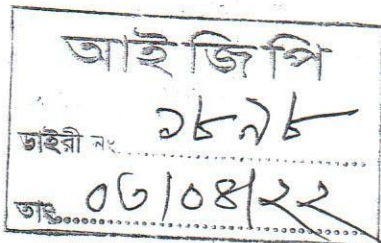 আইজিপি
ডাইরী নং ১৮৯৮
তাং ০৩/০৪/২২